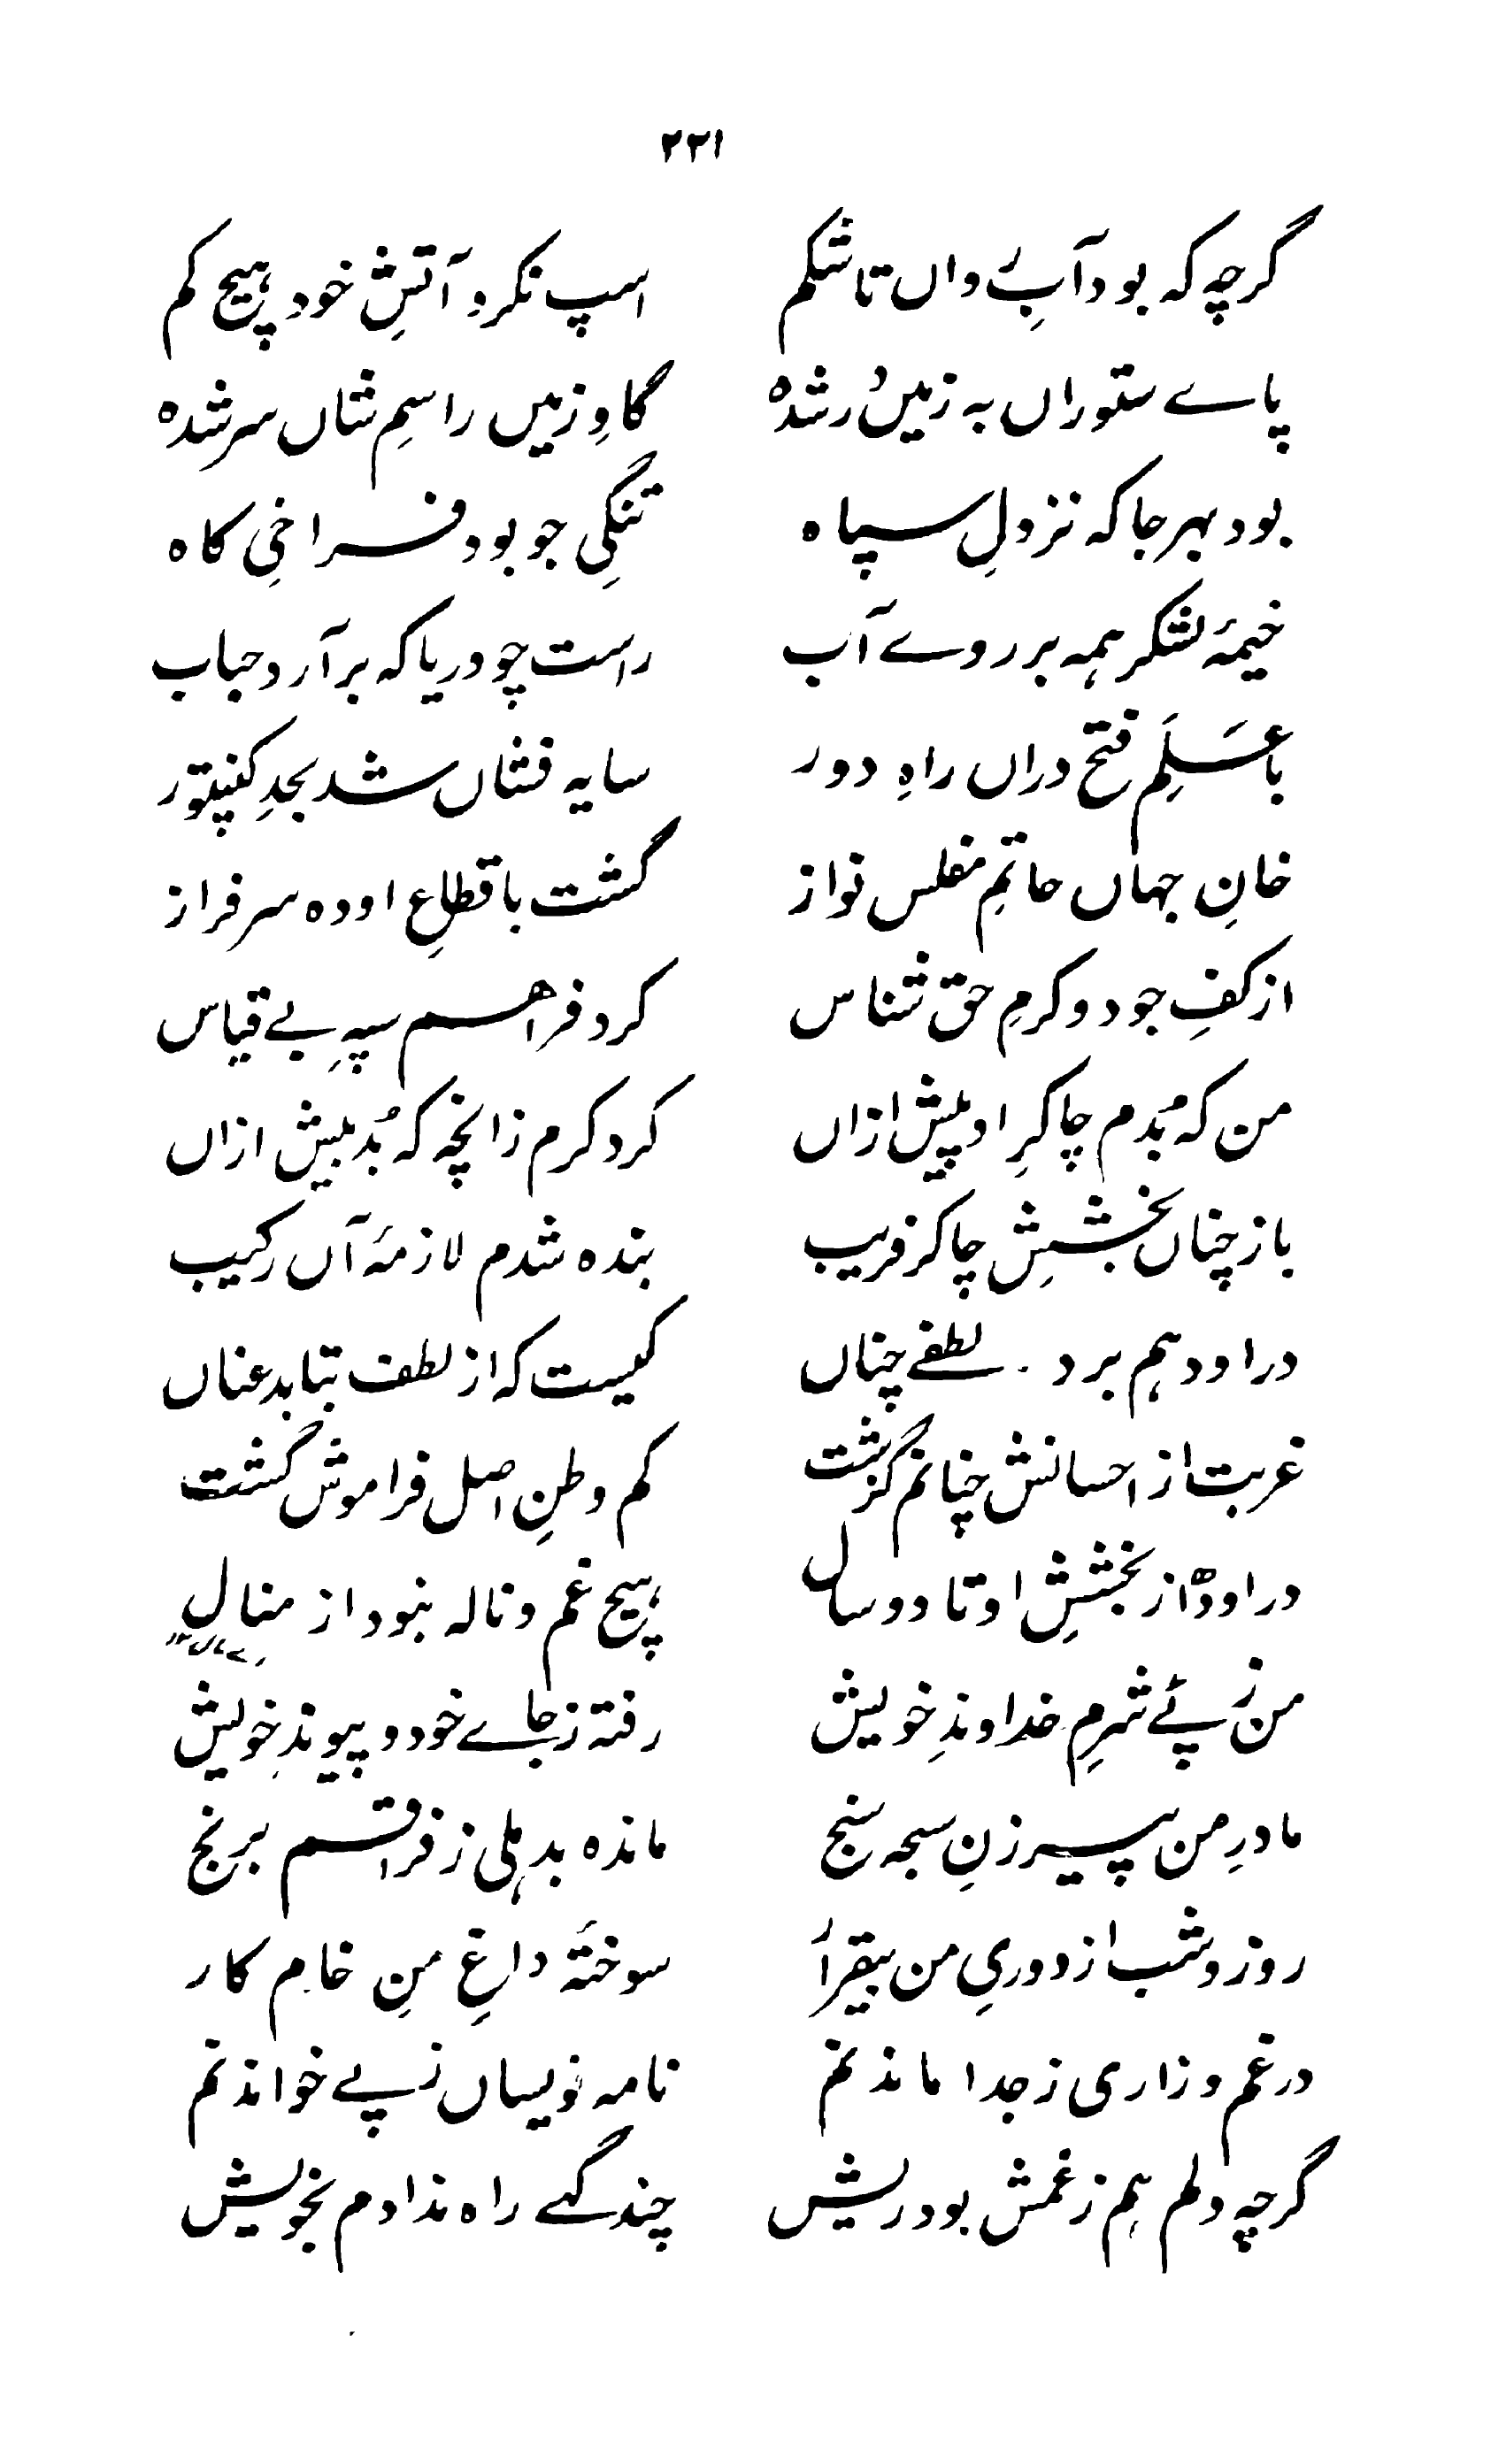 ۲۲۱
گرچه که بود آبِ رواں تا شکم	اسپ نکرد آتشِ خود ہیچ کم
پاے ستوراں به زمیں در شدہ	گاوِ زمیں را سمِ شاں سر شدہ
بود بہر جا که نزولِ سپاہ	تنگیِ جو بود فراخیِ کاہ
خیمۂ لشکر ہمه بر روے آب	راست چو دریا که بر آرد حباب
با عَلَمِ فتح دراں راہِ دور	سایه فشاں شد بحدِ کنپتور
خانِ جہاں حاتمِ مفلس نواز	گشت باقطاعِ اودہ سرفراز
از کفِ جود و کرمِ حق شناس	کرد فراهم سپهِ بے قیاس
من که بُدم چاکرِ او پیش ازاں	کرد کرم زانچه که بُد بیش ازاں
باز چناں بخششِ چاکر فریب	بندہ شدم لازمۂ آں رکیب
در اودہم برد . لطفے چناں	کیست که از لطف بتابد عناں
غربت از احسانش چنانم گزشت	کم وطنِ اصل فراموش گشت
در اودھ از بخششِ او تا دو سال	ہیچ غم و ناله نبود از منال
من ز پئے شرمِ خداوندِ خویش	رفته ز جاے خود و پیوندِ خویش
مادرِ من پیر زنِ سبحه سنج	ماندہ بدہلی ز فراقم برنج
روز و شب از دوریِ من بیقرار	سوختۂ داغِ منِ خام کار
در غم و زاری ز جدا ماندنم	نامه نویساں ز پے خواندنم
گرچه دلم ہم ز غمش بود ریش	چند گہے راہ ندادم بخویش